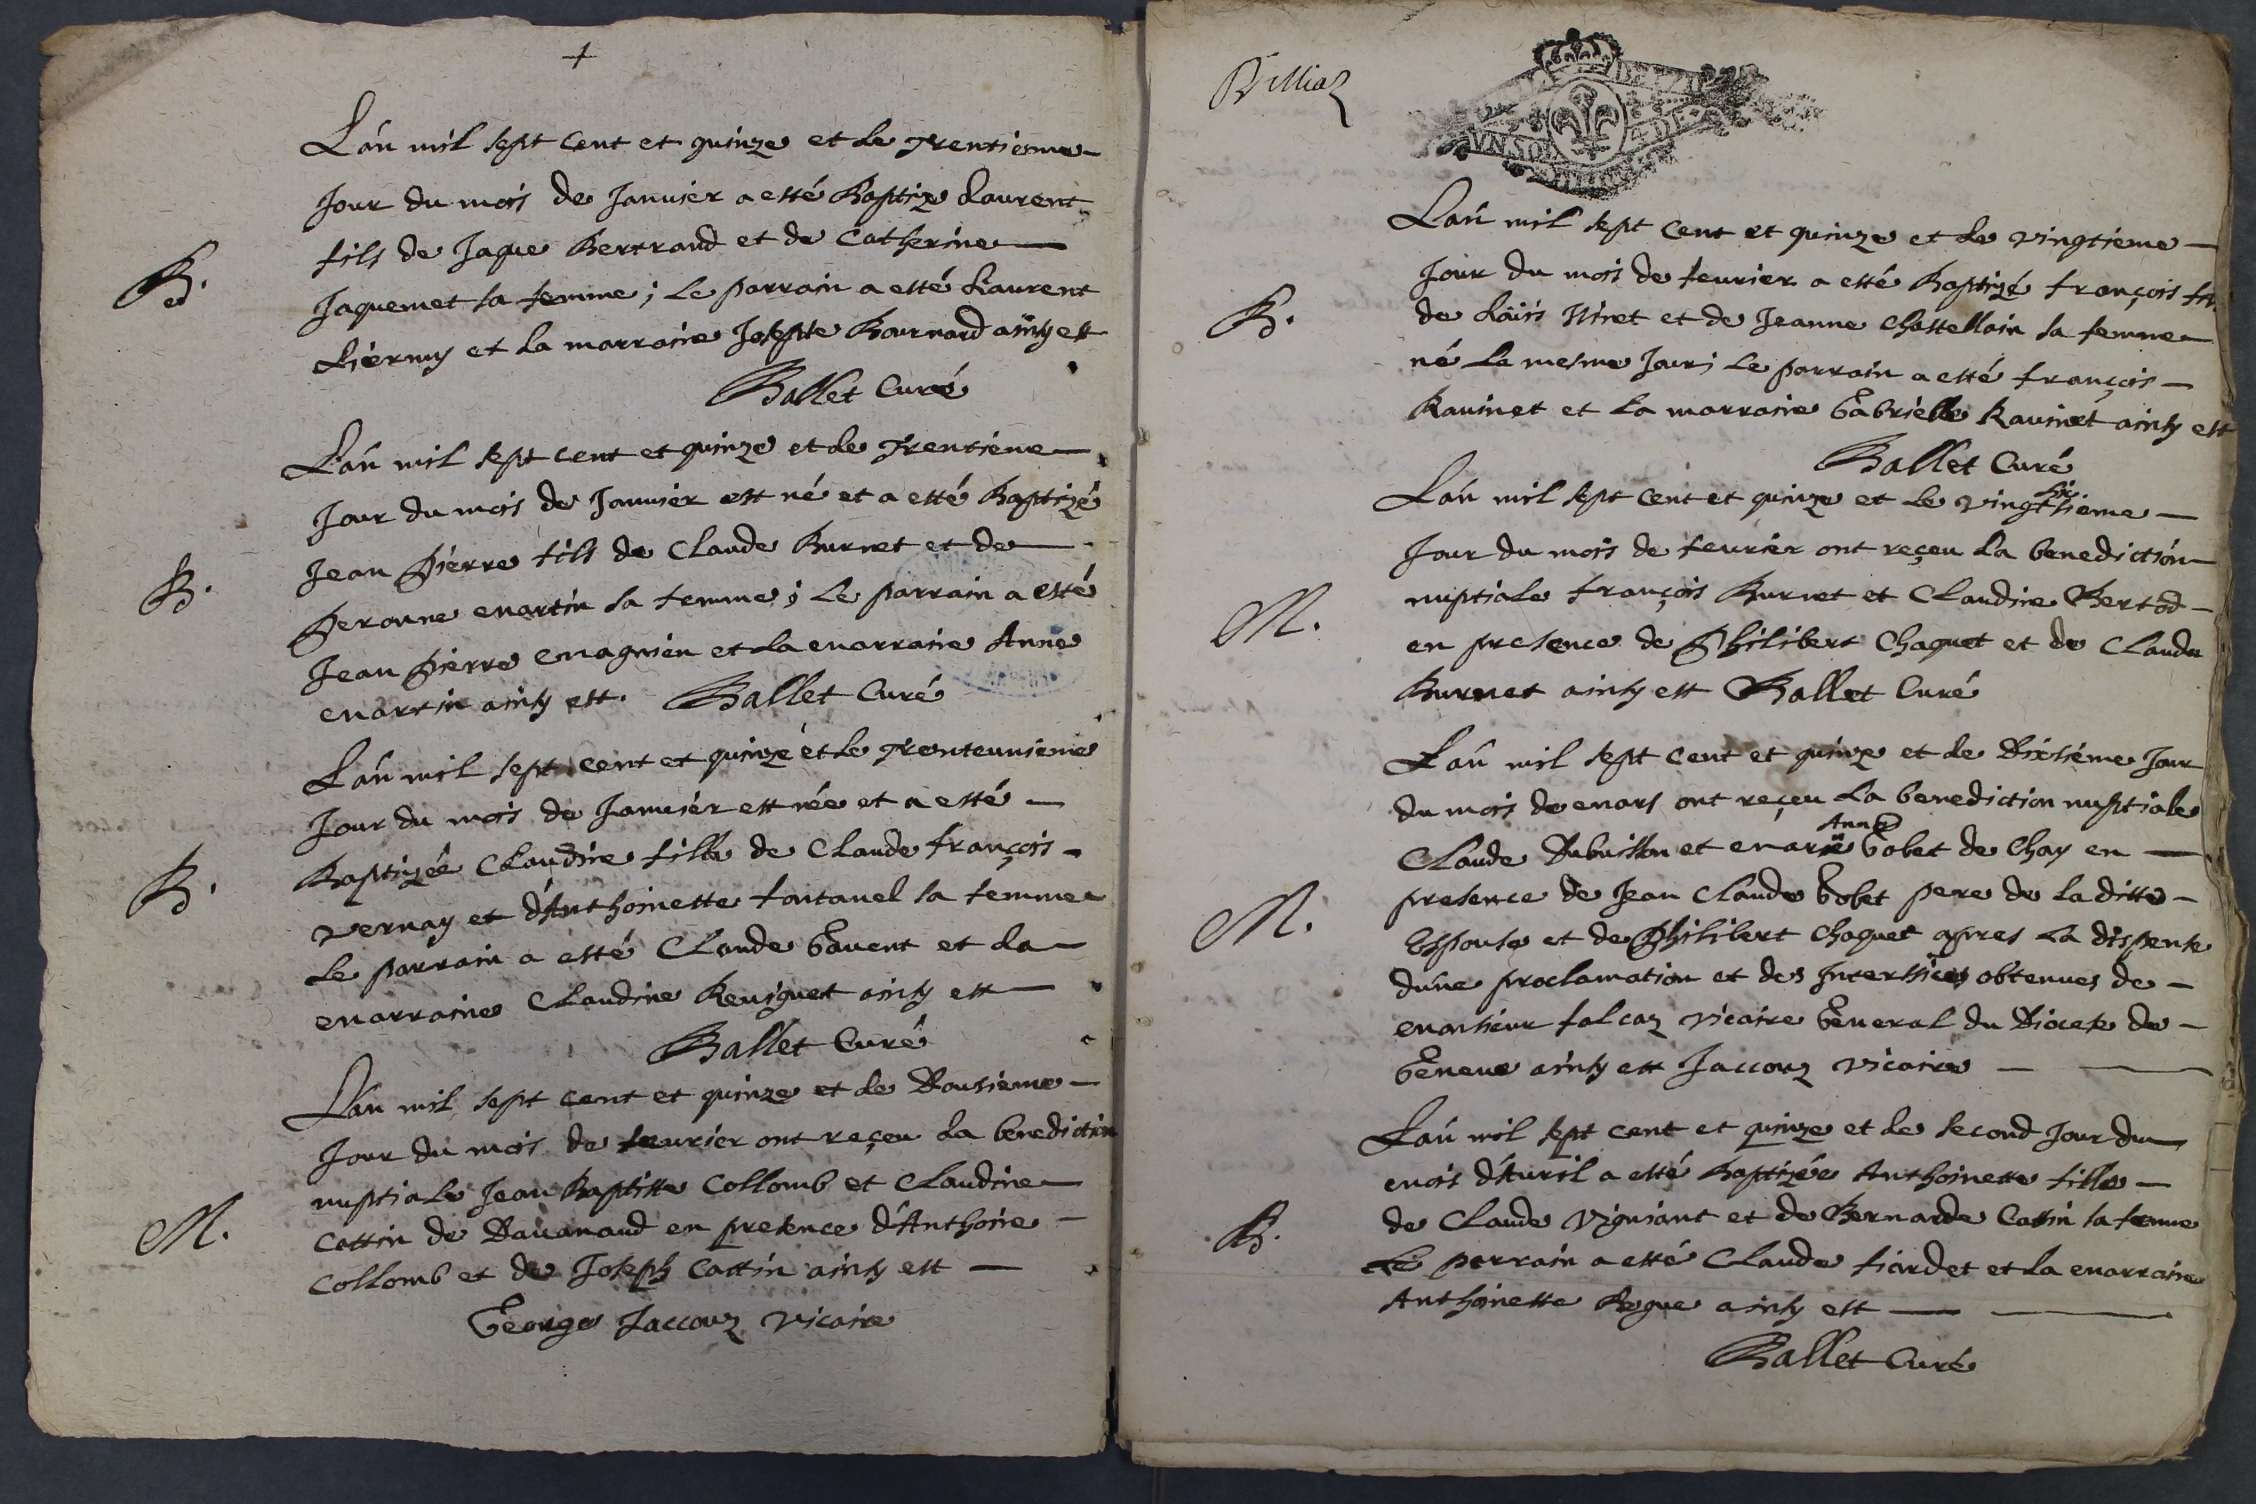 +
L'an mil sept cent et quinze et le Trentieme
Jour du mois de Januier a esté Baptizé Laurent
fils de Jaque Bertrand et de Catherine
B.
Jaquemet sa femme; Le parrain a esté Laurent
et La marraine Josepte Bournard ainsy est
Ballet Curé
L'an mil sept cent et quinze et le Trentieme
Jour du mois de Januier est né et a esté Baptizé
Jean Pierre fils de Claude Burnet et de
B.
Peronne martin sa femme; Le parrain a esté
Jean Pierre magnien et La marraine Anne
martin ainsy est. Ballet Curé
L'an mil sept cent et quinze et le Trenteunieme
Jour du mois de Januier est née et a esté
Baptizée Claudine fille de Claude françois
B.
Vernay et d'Anthoinette fontanel sa femme
Le parrain a esté Claude Gauent et La
marraine Claudine Reuignet ainsy est
Ballet Curé
L'an mil sept cent et quinze et le Dousieme
Jour du mois de feurier ont reçeu La benediction
nuptiale Jean Baptiste Collomb et Claudine
M.
Cottin de Dauanaud en presence d'Anthoine
Collomb et de Joseph Cattin ainsy est
George Jaccouz Vicaire
Billiaz
VN SOL
L'an mil sept cent et quinze et le Vingtieme
Jour du mois de feurier a esté Baptizé françois fils
B.
de Loüis Niret et de Jeanne Chastellain sa femme
né Le mesme Jour; Le parrain a esté françois
Rauinet et La marraine Gabrielle Rauinet ainsy est
Ballet Curé
six
L'an mil sept cent et quinze et Le Vingtsieme
Jour du mois de feurier ont reçeu La benediction
nuptiale françois Burnet et Claudine Bertod
M.
en presence de Philibert Chaquet et de Claude
Burnet ainsy est Ballet Curé
L'an mil sept cent et quinze et le Dixsiéme Jour
du mois de mars ont reçeu La benediction nuptiale
Anne
Claude Dubuisson et marie Gobet de Chay en
presence de Jean Claude Gobet pere de La ditte
M.
Espouse et de Philibert Chaquet apres La dispense
dune proclamation et des Interssices obtenues de
monsieur falcaz Vicaire General du Diocese de
Geneue ainsy est Jaccouz Vicaire
L'an mil sept cent et quinze et le second Jour du
mois d'Auril a esté Baptizée Anthoinette fille
B.
de Claude Vigniant et de Bernarde Cottin sa femme
Le parrain a esté Claude fiardet et La marraine
Anthoinette Rogue ainsy est
Ballet Curé